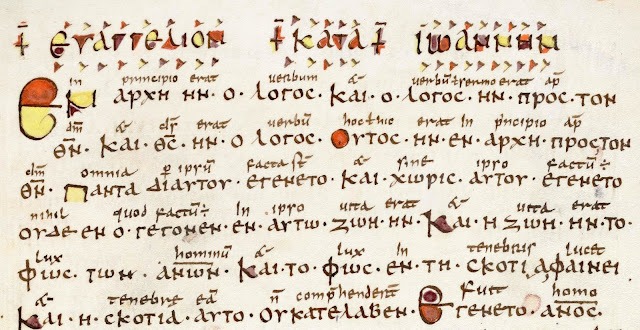 † ΕΥΑΓΓΕΛΙΟΝ † ΚΑΤΑ † ΙΩΑΝΝΗΝ
in principio erat verbum & verbū ł sermo erat ap̄
ΕΝ ΑΡΧΗ ΗΝ · Ο · ΛΟΓΟϹ · ΚΑΙ · Ο · ΛΟΓΟϹ · ΗΝ · ΠΡΟϹ · ΤΟΝ
dm̄ & ds̄ erat verbū hoc ł hic erat in principio ap̄
Θ̅Ν̅ · ΚΑΙ · Θ̅Ϲ̅ · ΗΝ · Ο ΛΟΓΟϹ · ΟΥΤΟϹ · ΗΝ · ΕΝ · ΑΡΧΗ · ΠΡΟϹ ΤΟΝ
dm̄ omnia p̄ ipsū facta sт̄ & sine ipso factū ÷
Θ̅Ν̅ · ΠΑΝΤΑ ΔΙΑΥΤΟΥ · ΕΓΕΝΕΤΟ · ΚΑΙ · ΧΩΡΙϹ · ΑΥΤΟΥ · ΕΓΕΝΕΤΟ
nihil quod factū ÷ in ipso vita erat & vita erat
ΟΥΔΕ ΕΝ · Ο ΓΕΓΟΝΕΝ · ΕΝ · ΑΥΤΩ · ΖΩΗ · ΗΝ · ΚΑΙ · Η ΖΩΗ · ΗΝ · ΤΟ ·
lux hominū & lux in tenebris lucet
ΦΩϹ · ΤΩΝ · Α̅Ν̅Ω̅Ν̅ · ΚΑΙ · ΤΟ · ΦΩϹ · ΕΝ · ΤΗ · ϹΚΟΤΙΑ ΦΑΙΝΕΙ
& tenebre eā n̄ comp̄hendert̄ fuit homo
ΚΑΙ · Η · ϹΚΟΤΙΑ · ΑΥΤΟ · ΟΥΚΑΤΕΛΑΒΕΝ · ΕΓΕΝΕΤΟ · Α̅Ν̅Ο̅Ϲ̅ ·